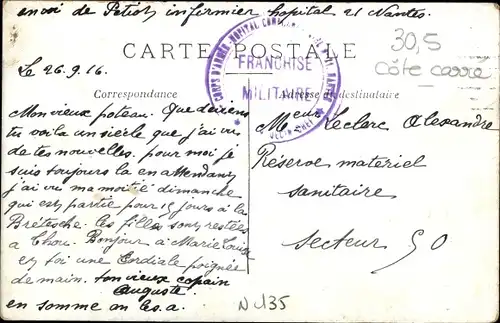 envoi de Petiot infirmier hopital 21 Nantes
CARTE POSTALE
30,5
Côte carré
FRANCHISE
MILITAIRE
Le 26.9.16.
Correspondance
Adresse du destinataire
Mon vieux poteau. Que deviens
tu voila un siècle que j'ai vu
de tes nouvelles. pour moi je
suis toujours la en attendant
j'ai vu ma moitié dimanche
qui est partie pour 15 jours à la
Bretesche. les filles sont restées
a Chou. Bonjour à Marie Louise
et toi une Cordiale poignée
de main. ton vieux copain
Auguste
en somme an les.a.
Mr Leclerc Alexandre
Réserve materiel
sanitaire
Secteur 50
N 435